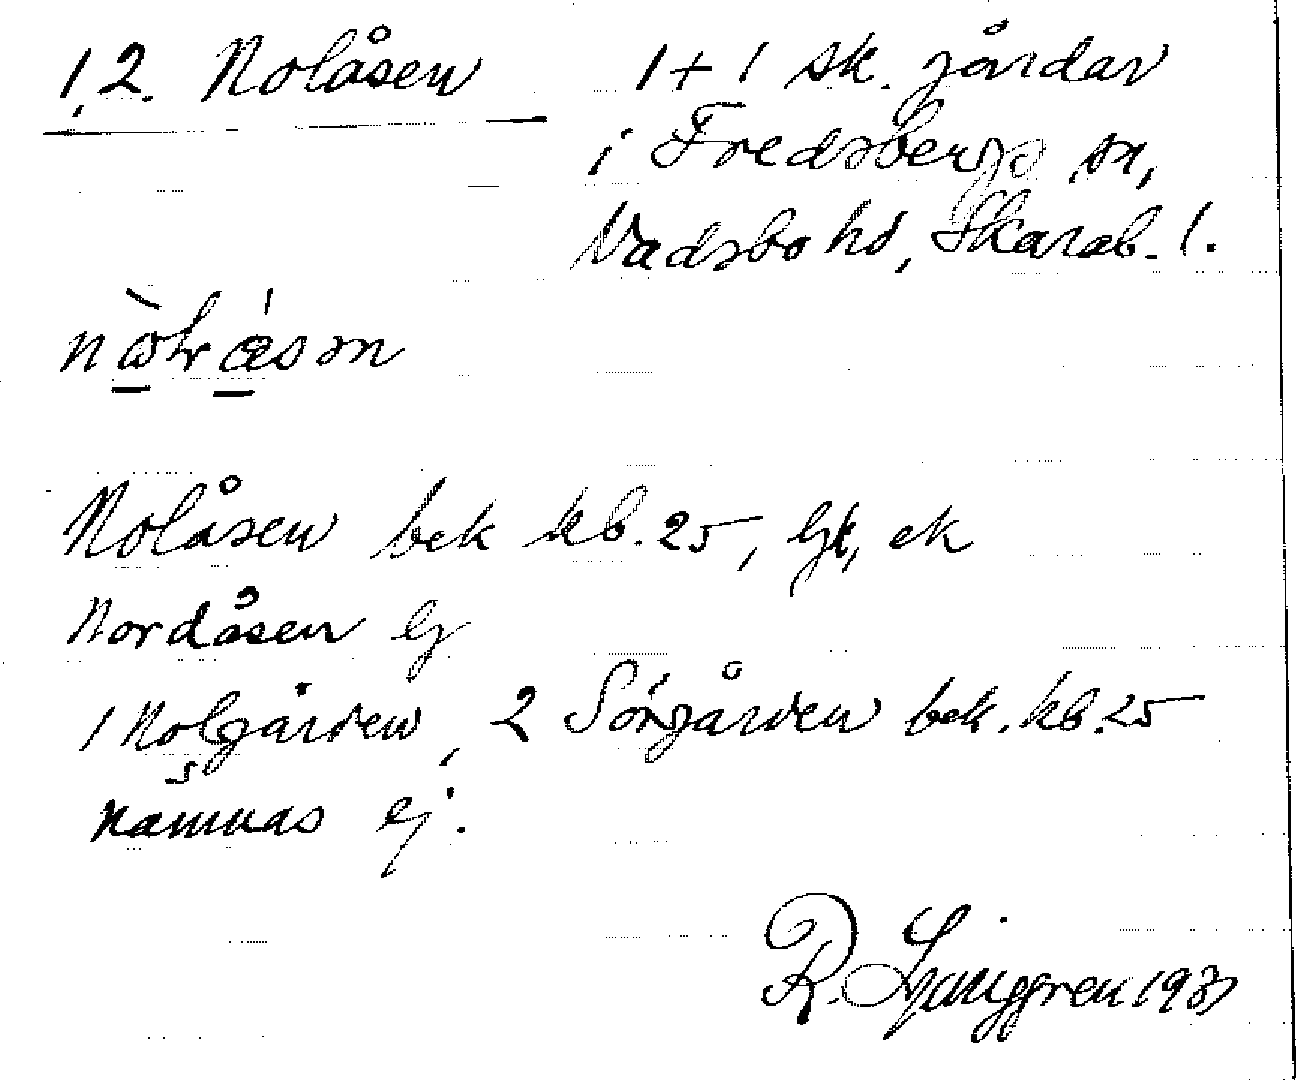 1,2. Nolåsen
1+1 sk. gårdar
i Fredsbergs sn,
Vadsbo hd, Skarab. l.
Nolåsen bek kb. 25, Gk, ek
Nordåsen Ej
1 Nolgården, 2 Sörgården bek. kb. 25
nämnas ej.
R. Ljunggren 193